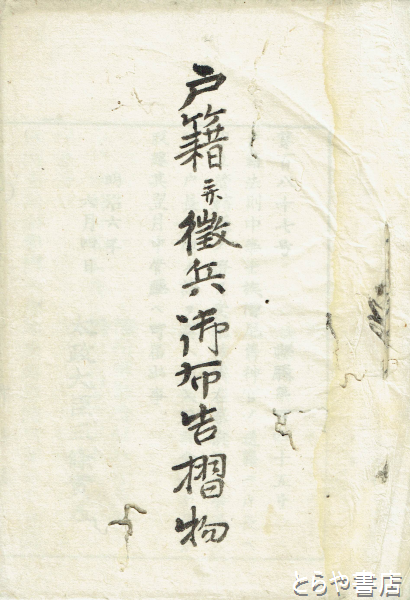 戸籍并徴兵御布告摺物
とらや書店